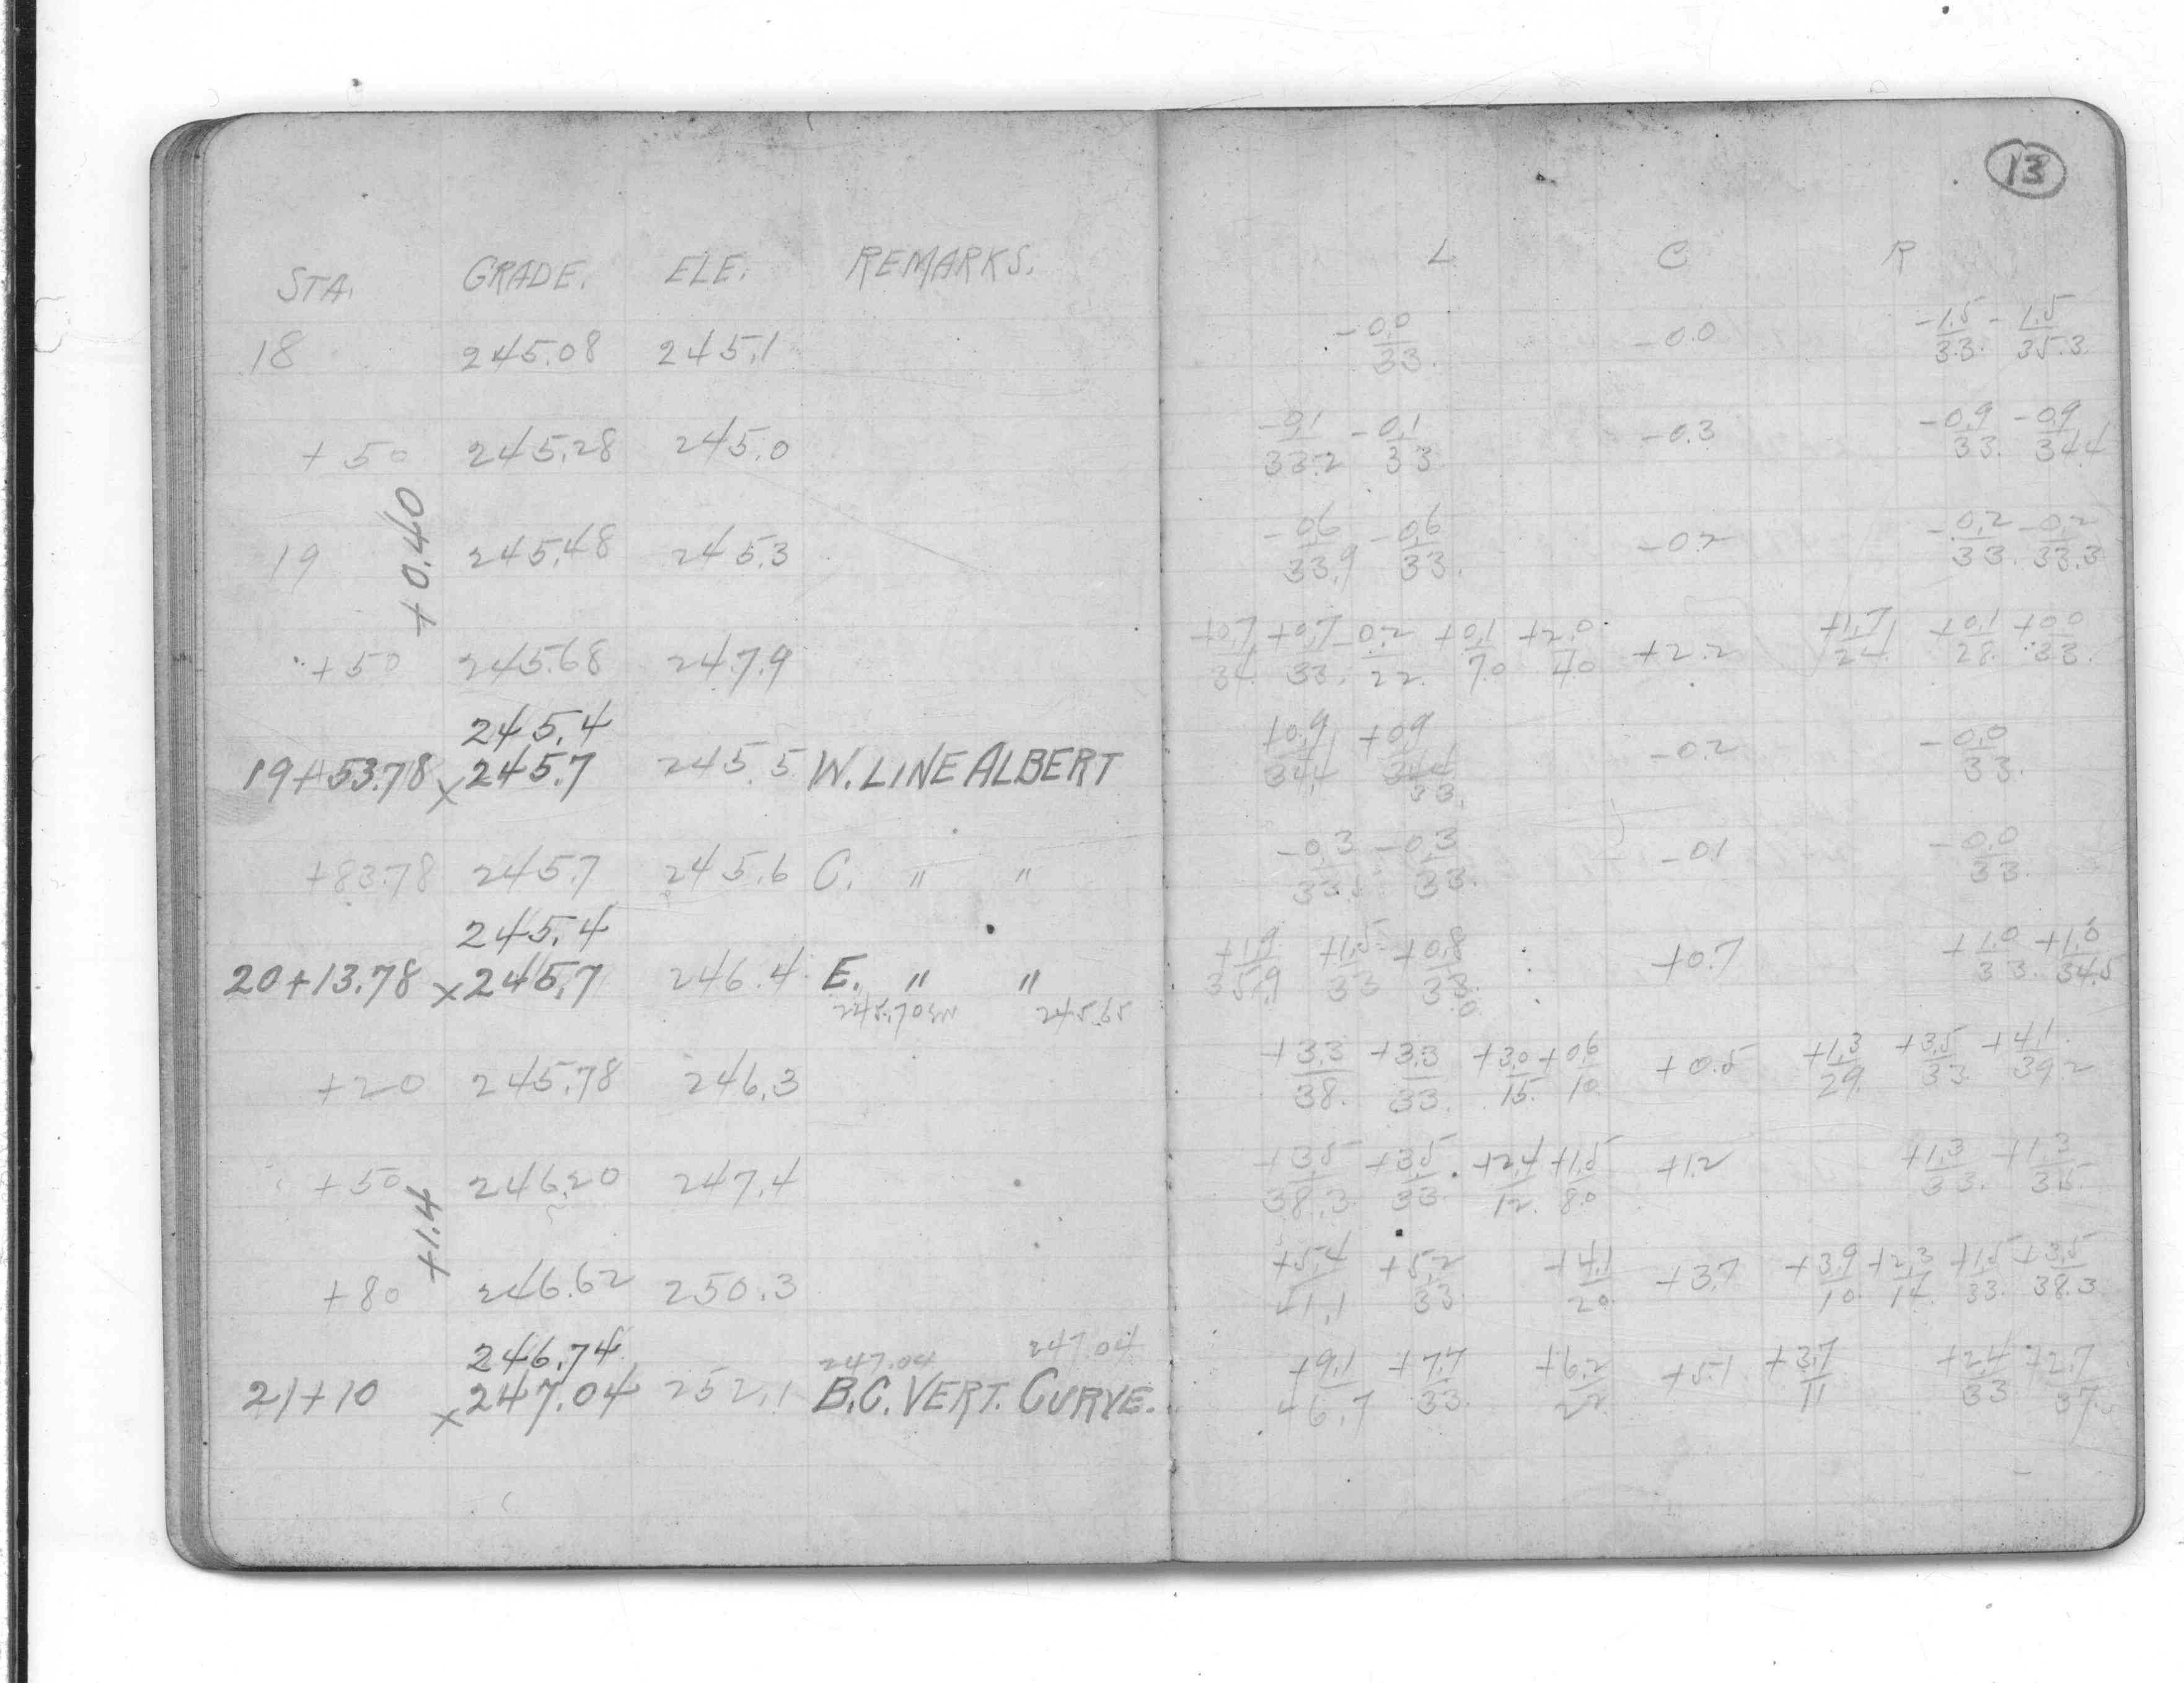 13
STA. GRADE. ELE. REMARKS. L C R
18 245.08 245.1 -0.0/33. -0.0 -1.5/33. -1.5/35.3
+50 245.28 245.0 -0.1/33.2 -0.1/33 -0.3 -0.9/33. -0.9/34.4
+0.40
19 245.48 245.3 -0.6/33.9 -0.6/33. -0.2 -0.2/33. -0.2/33.3
+50 245.68 247.9 +0.7/34. +0.7/33. -0.2/22. +0.1/7.0 +2.0/4.0 +2.2 +1.7/24 +0.1/28. +0.0/33.
245.4
19+53.78 x 245.7 245.5 W. LINE ALBERT +0.9/34.4 +0.9/33. -0.2 -0.0/33.
+83.78 245.7 245.6 C. " " -0.3/33.5 -0.3/33. -0.1 -0.0/33.
245.4
20+13.78 x 245.7 246.4 E. " " +1.9/35.9 +1.5/33 +0.8/33.0 +0.7 +1.0/33. +1.0/34.5
245.70 245.65
+20 245.78 246.3 +3.3/38. +3.3/33. +3.0/15. +0.6/10. +0.5 +1.3/29. +3.5/33. +4.1/39.2
+50 246.20 247.4 +3.5/38.3 +3.5/33. +2.4/12. +1.5/8.0 +1.2 +1.3/33. +1.3/35.
+1.4
+80 246.62 250.3 +5.4/41.1 +5.2/33. +4.1/20. +3.7 +3.9/10. +2.3/14. +1.5/33. +3.5/38.3
246.74 247.04 247.04
21+10 x 247.04 252.1 B.C. VERT. CURVE. +9.1/46.7 +7.7/33. +6.2/22. +5.1 +3.7/11 +2.4/33 +2.7/37.